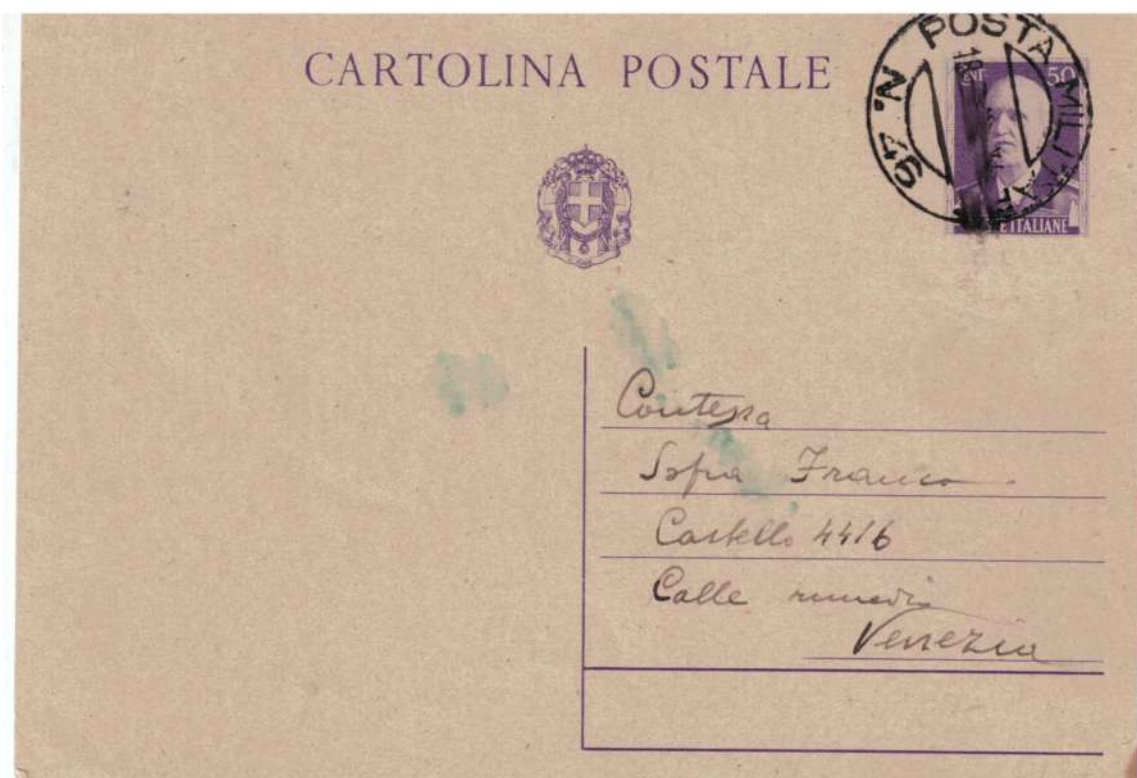 CARTOLINA POSTALE
POSTA MILITARE N. 94
18
CENT 50
POSTE ITALIANE
Contessa
Sofia Franco
Castello 4416
Calle rimedio
Venezia